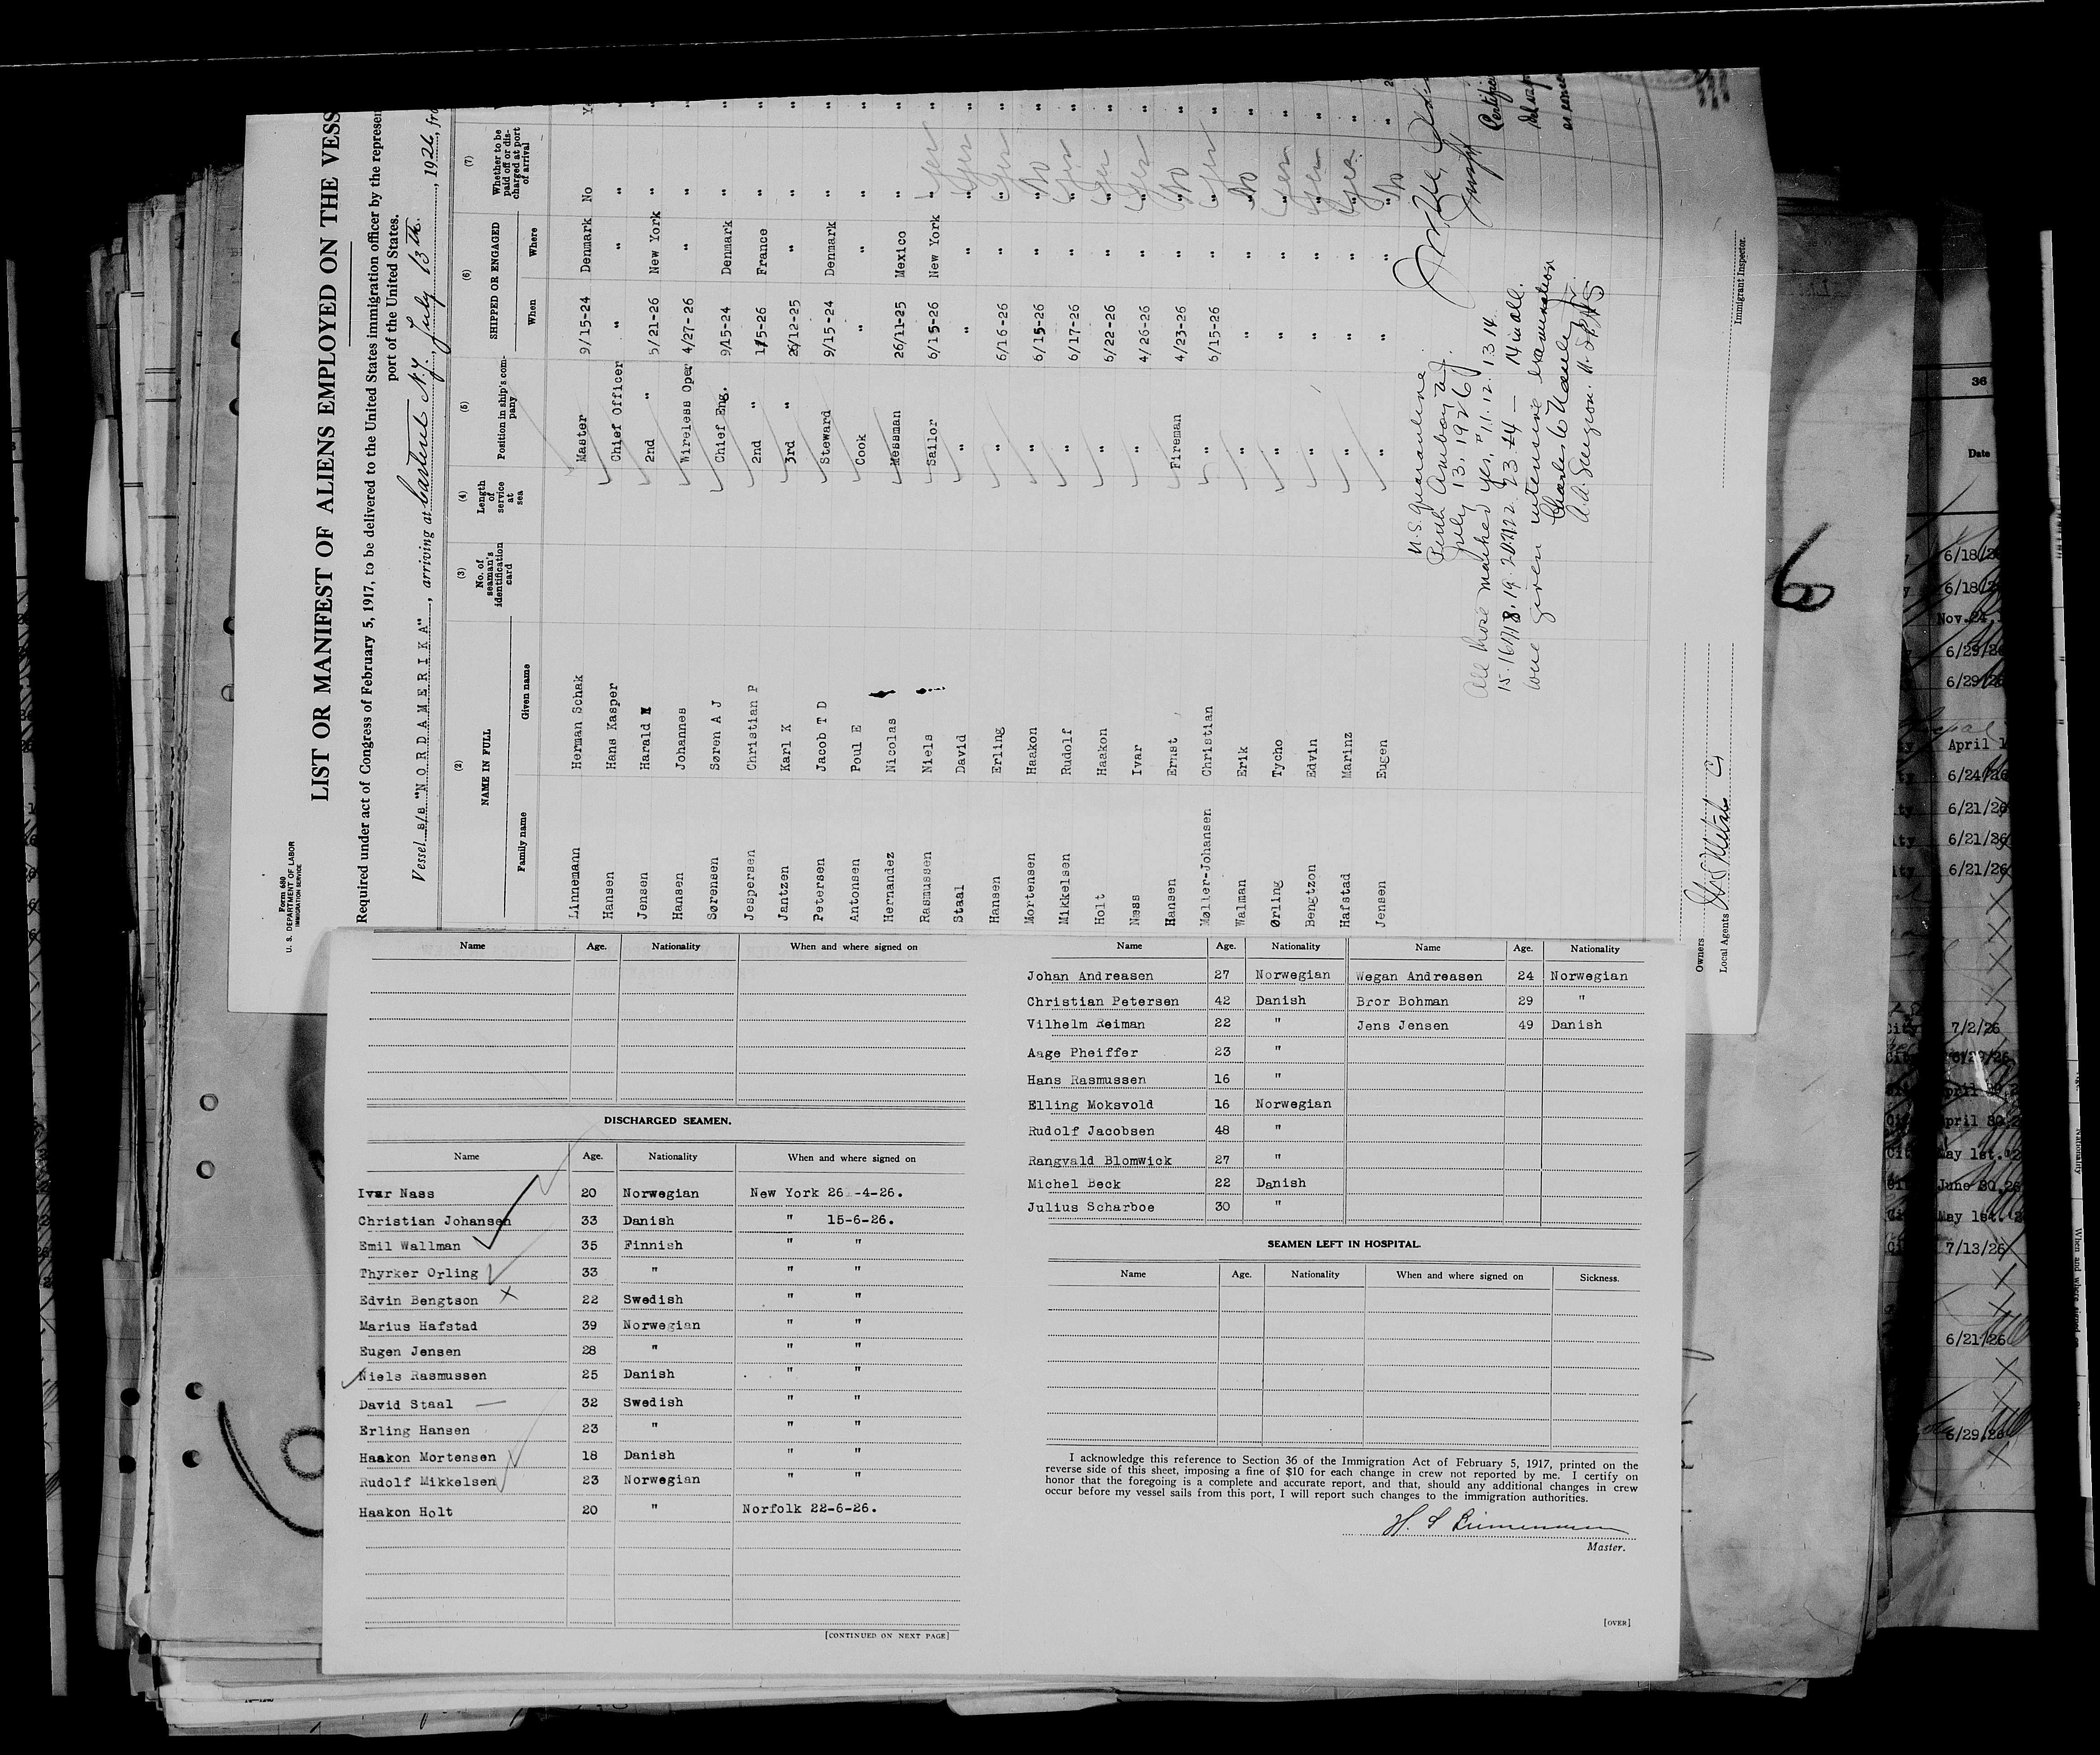 Form 680
U. S. DEPARTMENT OF LABOR
IMMIGRATION SERVICE
LIST OR MANIFEST OF ALIENS EMPLOYED ON THE VESS
Required under act of Congress of February 5, 1917, to be delivered to the United States immigration officer by the represen
port of the United States.
Vessel s/s "NORDAMERIKA", arriving at Carteret N.J., July 13th, 1926, fro
(2) (3) (4) (5) (6) (7)
NAME IN FULL No. of seaman's identification card Length of service at sea Position in ship's company SHIPPED OR ENGAGED Whether to be paid off or discharged at port of arrival
Family name Given name When Where
Linnemann Herman Schak Master 9/15-24 Denmark No
Hansen Hans Kasper Chief Officer " " "
Jensen Harald 2nd " 5/21-26 New York "
Hansen Johannes Wireless Oper 4/27-26 " "
Sørensen Søren A J Chief Eng. 9/15-24 Denmark "
Jespersen Christian P 2nd " 1/5-26 France "
Jantzen Karl K 3rd " 26/12-25 " "
Petersen Jacob T D Steward 9/15-24 Denmark "
Antonsen Poul E Cook " " "
Hernandez Nicolas Messman 26/11-25 Mexico "
Rasmussen Niels Sailor 6/15-26 New York " Yes
Staal David " " " " Yes
Hansen Erling " 6/16-26 " " Yes
Mortensen Haakon " 6/15-26 " " No
Mikkelsen Rudolf " 6/17-26 " " Yes
Holt Haakon " 6/22-26 " " Yes
Næss Ivar " 4/26-26 " " Yes
Hansen Ernst Fireman 4/23-26 " " No
Møller-Johansen Christian " 6/15-26 " " Yes
Walman Erik " " " " No
Ørling Tycho " " " " Yes
Bengtzon Edvin " " " " Yes
Hafstad Marinz " " " " Yes
Jensen Eugen " " " " No
U.S. Quarantine
Perth Amboy N.J.
July 13, 1926
All those marked yes, 11.12.13.14
15.16.17.18.19.20.21.22.23.24 — 14 in all.
were given intensive examination
A.A. Surgeon. U.S.P.H.S
Owners
Local Agents
Immigrant Inspector.
Name Age. Nationality When and where signed on
DISCHARGED SEAMEN.
Name Age. Nationality When and where signed on
Ivar Nass 20 Norwegian New York 26 -4-26.
Christian Johansen 33 Danish " 15-6-26.
Emil Wallman 35 Finnish " "
Thyrker Orling 33 " " "
Edvin Bengtson 22 Swedish " "
Marius Hafstad 39 Norwegian " "
Eugen Jensen 28 " " "
Niels Rasmussen 25 Danish " "
David Staal 32 Swedish " "
Erling Hansen 23 " " "
Haakon Mortensen 18 Danish " "
Rudolf Mikkelsen 23 Norwegian " "
Haakon Holt 20 " Norfolk 22-6-26.
[CONTINUED ON NEXT PAGE]
Name Age. Nationality Name Age. Nationality
Johan Andreasen 27 Norwegian Wegan Andreasen 24 Norwegian
Christian Petersen 42 Danish Bror Bohman 29 "
Vilhelm Reiman 22 " Jens Jensen 49 Danish
Aage Pheiffer 23 "
Hans Rasmussen 16 "
Elling Moksvold 16 Norwegian
Rudolf Jacobsen 48 "
Rangvald Blomwick 27 "
Michel Beck 22 Danish
Julius Scharboe 30 "
SEAMEN LEFT IN HOSPITAL.
Name Age. Nationality When and where signed on Sickness.
I acknowledge this reference to Section 36 of the Immigration Act of February 5, 1917, printed on the
reverse side of this sheet, imposing a fine of $10 for each change in crew not reported by me. I certify on
honor that the foregoing is a complete and accurate report, and that, should any additional changes in crew
occur before my vessel sails from this port, I will report such changes to the immigration authorities.
Master.
[OVER]
36
Date
6/18/2
6/18/2
Nov.24,
6/29/26
6/29/26
April 1
6/24/26
6/21/26
6/21/26
6/21/26
7/2/26
April 30,2
May 1st.'2
June 30,26
May 1st.'2
7/13/26
6/21/26
6/29/26
6